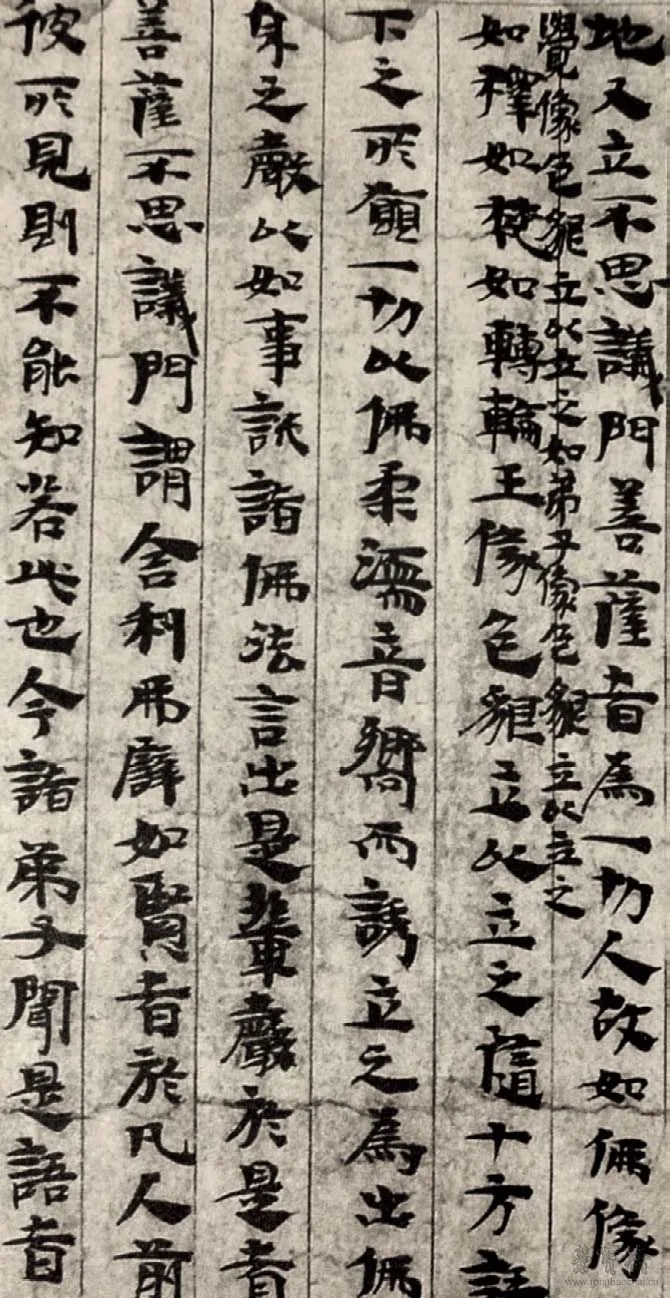 地又立不思議門菩薩者為一切人故如佛像
覺像色貌立以立之如弟子像色貌立以立之
如釋如梵如轉輪王像色貌立以立之隨十方語
下之所願一切以佛柔濡音響而誘立之為出佛
身之聲以如事説諸佛法言出是輩聲於是耆
菩薩不思議門謂舍利弗譬如賢者於凡人前
彼所見則不能知若此也今諸弟子聞是語者
榮寶齋
www.rongbaozhai.cn